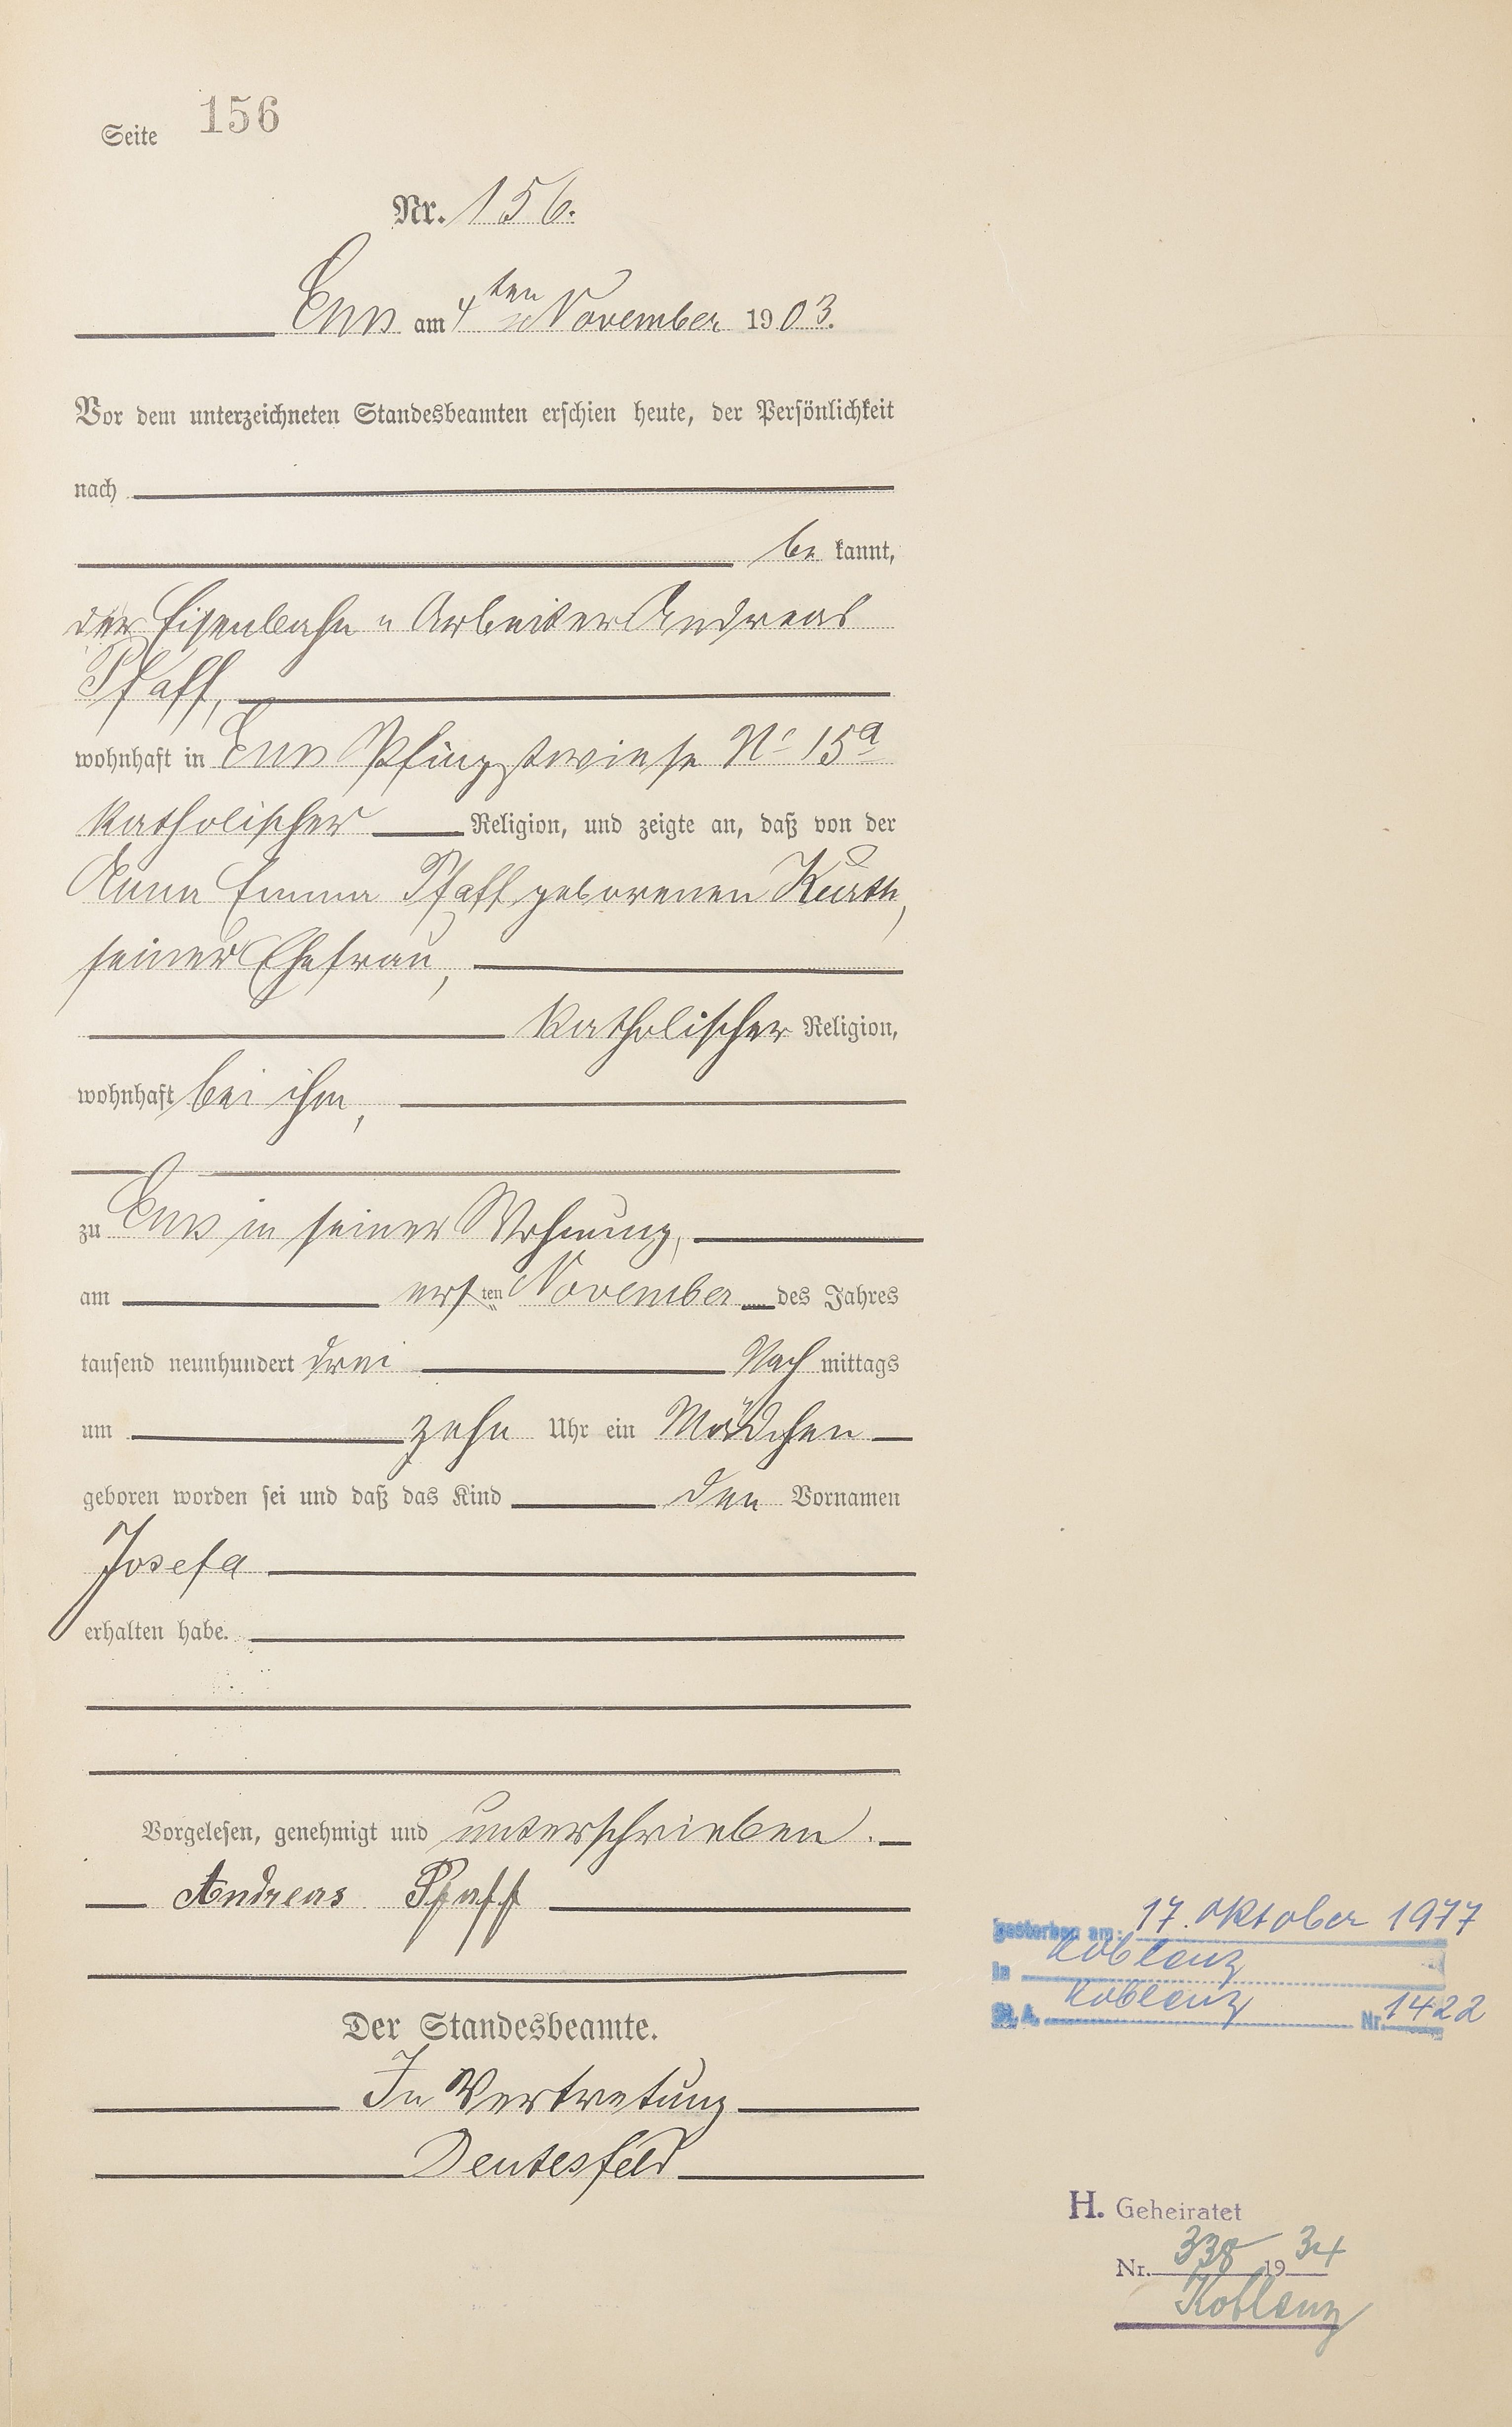 Seite 156
Nr. 156.
Ems am 4ten November 1903.
Vor dem unterzeichneten Standesbeamten erschien heute, der Persönlichkeit
nach
be kannt,
der Eisenbahn-Arbeiter Andreas
Pfaff,
wohnhaft in Ems Pfingstwiese No 15a
katholischer Religion, und zeigte an, daß von der
Anna Emma Pfaff geborenen Kurth,
seiner Ehefrau,
katholischer Religion,
wohnhaft bei ihm,
zu Ems in seiner Wohnung,
am ersten November des Jahres
tausend neunhundert drei Nach mittags
um zehn Uhr ein Mädchen
geboren worden sei und daß das Kind den Vornamen
Josefa
erhalten habe.
Vorgelesen, genehmigt und unterschrieben.
Andreas Pfaff
Der Standesbeamte.
In Vertretung
Deutesfeld
gestorben am: 17. Oktober 1977
in Koblenz
St. A. Koblenz Nr. 1422
H. Geheiratet
Nr. 338 1934
Koblenz